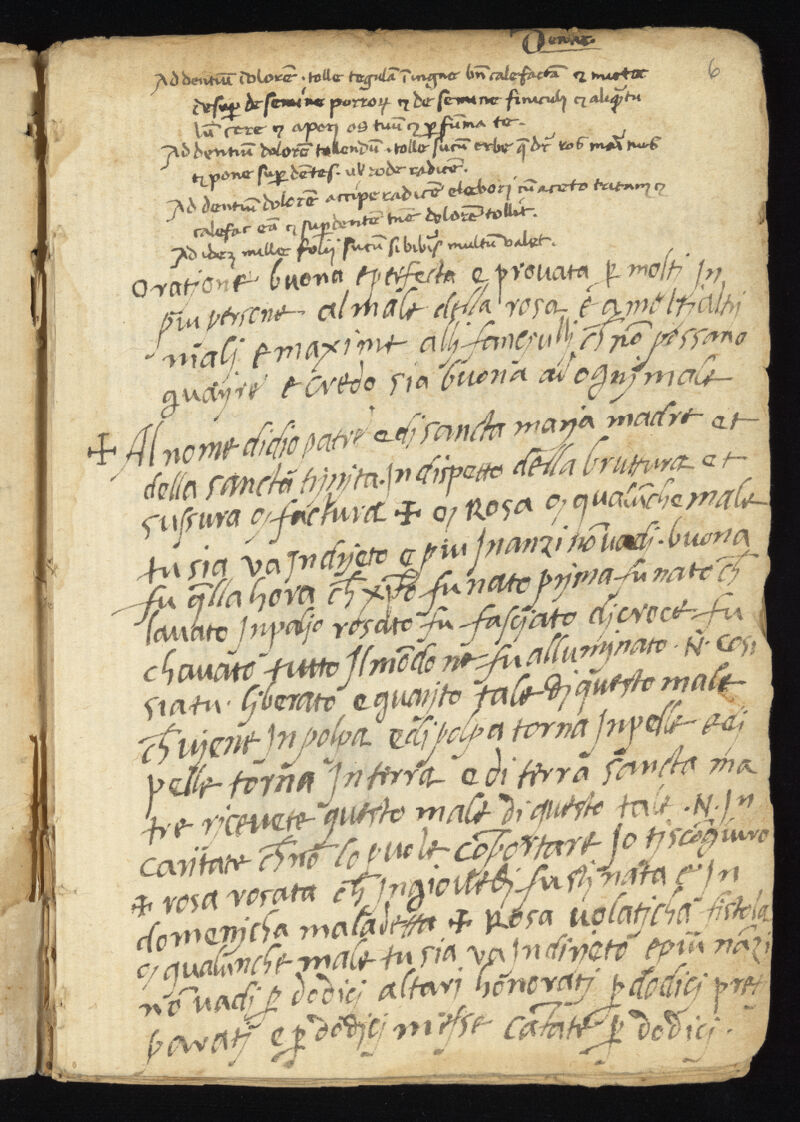 Dentes.
6
Ad dentiũ dolorẽ · tolle tegulã ĩ ingne bñ calefactã et
desup̱ de semine porror̃ et de semine finiculi et aliq̃tu
lũ cere et aperi os tuũ et p̱fuma te.
Ad dentiũ dolorẽ tollendũ · tolle sucũ erbe q̃ dr̃ ros marinus
et pone sup̱ dẽtes. ul rode radicẽ.
Ad dentiũ dolorẽ accipe radicẽ elebori cũ aceto tritam et
calefac eã et sup̱ dentẽ tene dolorẽ tollit.
Ad idez mille folij sucũ si bibis multũ valet.
Oratione buona e perfecta e provata p̱ molti In
piu persone al male della rosa e a moltj altrj
malj e maxime allj fancjullj cħ nõ possano
guarjre e credo sia buona ad ognj male
✠ Al nome di dio patre e dj sancta marja madre et
della sancta trjnjta. In dispetto della bruttura et
sussura o factura ✠ o Rosa o qualũche male
tu sia va Indrjeto e piu Inanzi nõ vadj. buona
fu q̃lla hora cħ xp̃o fu nato prjma fu nato cħ
lavato In palio rosato fu fascjato dj croce fu
chavato tutto Il mõdo ne fu allumjnato. N. cosi
sia tu. ljberato e guarjto tale dj questo male
cħ vjene In polpa e dj polpa torna In pelle e dj
pelle torna In terra e di terra sancta ma
tre rjcevete questo male dj questo tale .N. In
caritate cħ nõ lo puole cõportare Io tj scõgiuro
✠ rosa rosata cħ In giovedj fustj nata e In
domenjcha maladetta ✠ Rosa volatjcha fistola
o qualũnche male tu sia va Indirjeto e piu nãzi
nõ vadj p̱ dodicj altarj honoratj p̱ dodicj pret
paratj e p̱ dodjcj messe cãtate p̱ dodicj.